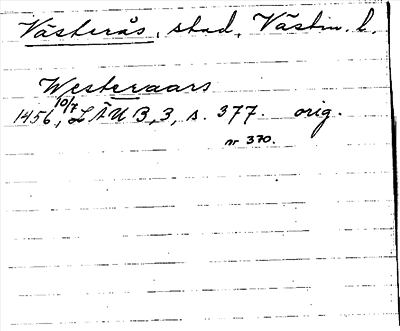 Västerås, stad, Västm. l.
Westeraars
1456 10/7, LÄUB, 3, s. 377. orig.
nr 370.